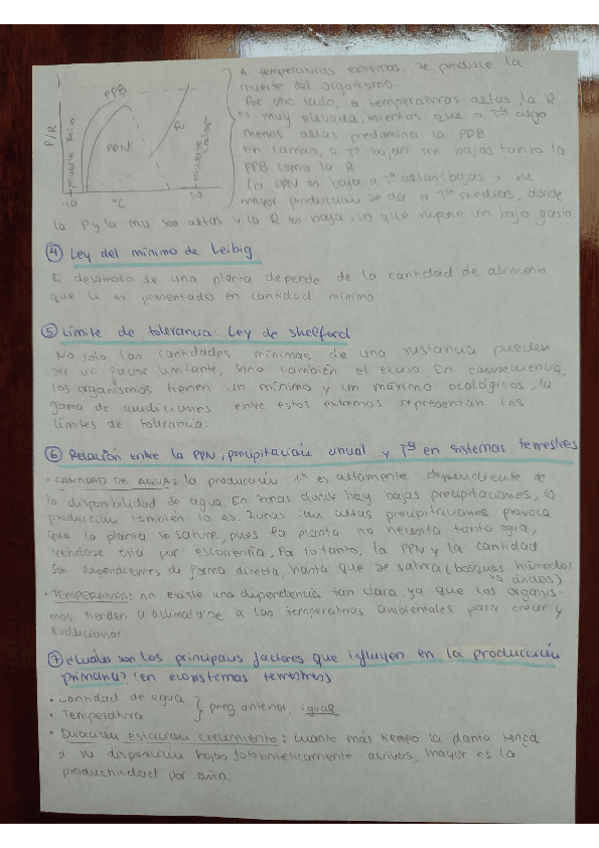 P/R
PPB
PPN
R
muerte frío
muerte calor
-10
°C
50
A temperaturas extremas, se produce la
muerte del organismo.
Por otro lado, a temperaturas altas la R
es muy elevada, mientras que a Tª algo
menos altas predomina la PPB
En cambio, a Tª bajan son bajas tanto la
PPB como la R
La PPN es baja a Tª altas/bajas y su
mayor producción se da a Tª medias, donde
la P y la son altas y la R es baja, lo que supone un bajo gasto.
④ Ley del mínimo de Leibig
El desarrollo de una planta depende de la cantidad de alimento
que le es presentado en cantidad mínima
⑤ Límite de tolerancia: Ley de Shelford
No solo las cantidades mínimas de una sustancia pueden
ser un factor limitante, sino también el exceso. En consecuencia,
los organismos tienen un mínimo y un máximo ecológicos, la
gama de condiciones entre estos extremos representan los
límites de tolerancia.
⑥ Relación entre la PPN, precipitación anual y Tª en sistemas terrestres
· CANTIDAD DE AGUA: la producción 1ª es altamente dependiente de
la disponibilidad de agua. En zonas donde hay bajas precipitaciones, la
producción también lo es. Zonas con altas precipitaciones provoca
que la planta se sature, pues la planta no necesita tanta agua,
yéndose esta por escorrentía. Por lo tanto, la PPN y la cantidad
son dependientes de forma directa, hasta que se satura (bosques húmedos
vs áridos)
· TEMPERATURA: no existe una dependencia tan clara, ya que los organis-
mos tienden a aclimatarse a las temperaturas ambientales para crecer y
evolucionar
⑦ ¿Cuáles son los principales factores que influyen en la producción
primaria? (en ecosistemas terrestres)
· Cantidad de agua
· Temperatura
} preg anterior, igual
· Duración estación crecimiento: cuanto más tiempo la planta tenga
a su disposición hojas fotosintéticamente activas, mayor es la
productividad por año.